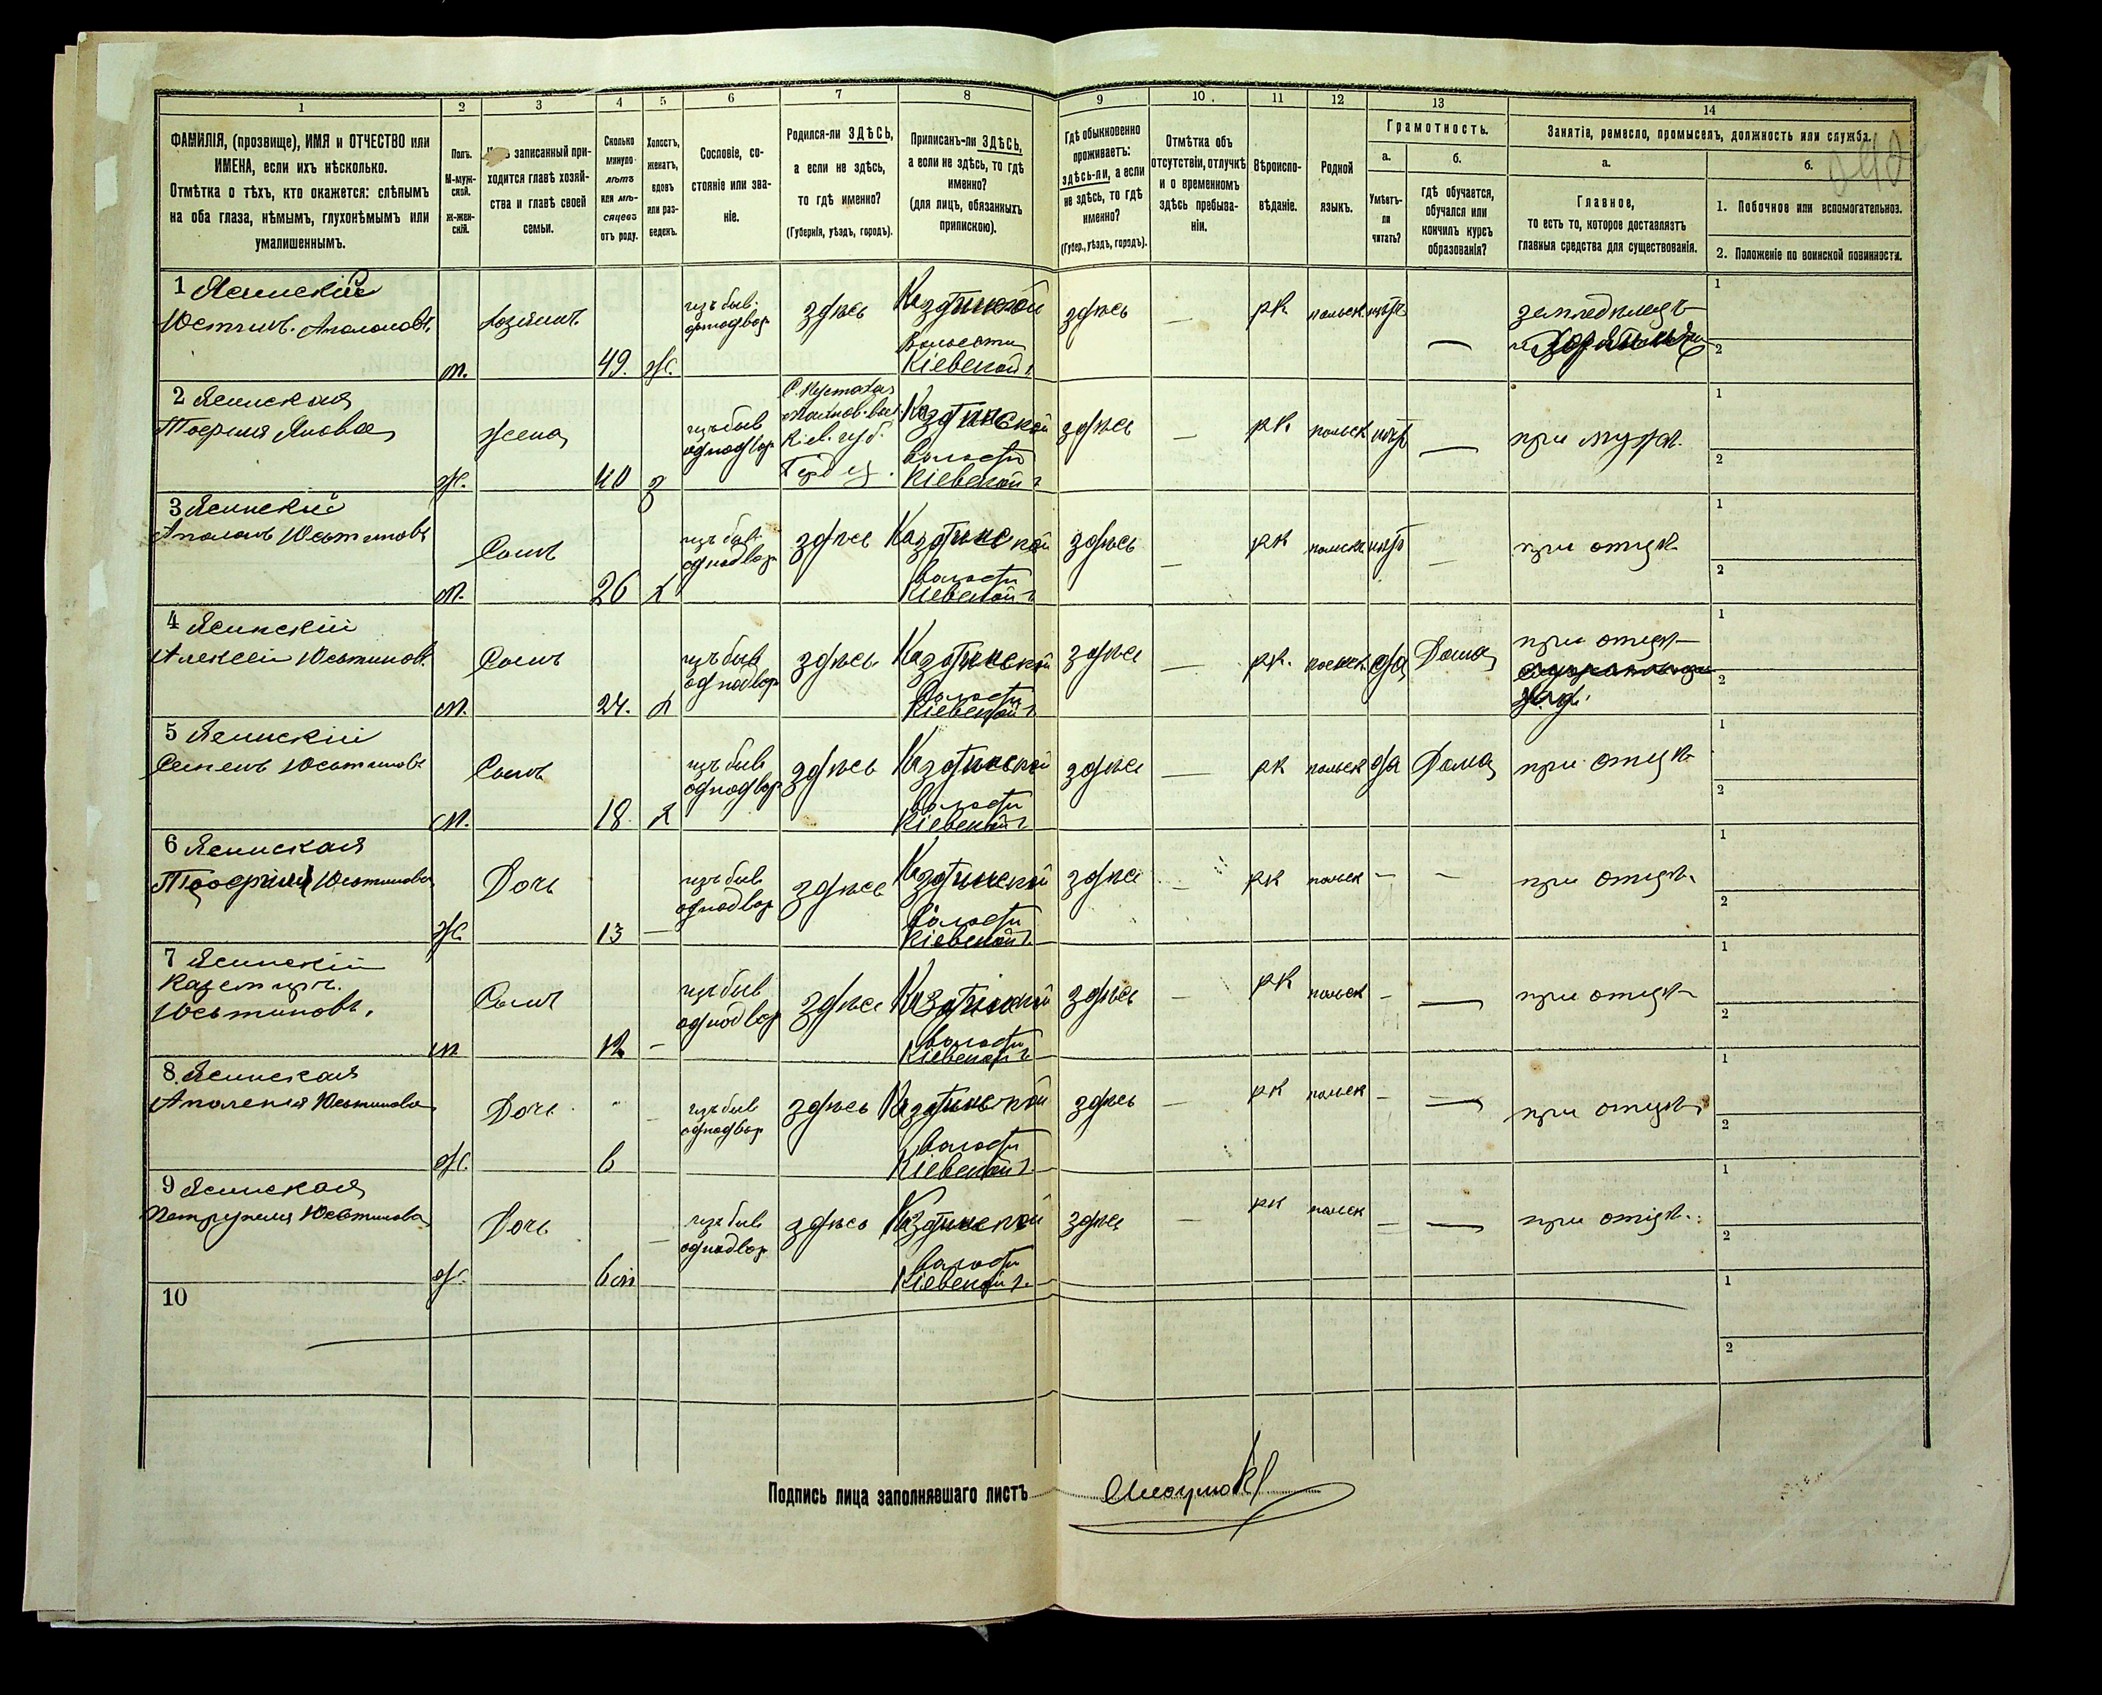 1 2 3 4 5 6 7 8 9 10 11 12 13 14
ФАМИЛІЯ, (прозвище), ИМЯ и ОТЧЕСТВО или
ИМЕНА, если ихъ нѣсколько.
Отмѣтка о тѣхъ, кто окажется: слѣпымъ
на оба глаза, нѣмымъ, глухонѣмымъ или
умалишеннымъ.
Полъ.
М-муж-
ской.
ж-жен-
скій.
записанный при-
ходится главѣ хозяй-
ства и главѣ своей
семьи.
Сколько
минуло
лѣтъ
или мѣ-
сяцевъ
отъ роду.
Холостъ,
женатъ,
вдовъ
или раз-
веденъ.
Сословіе, со-
стояніе или зва-
ніе.
Родился-ли ЗДѢСЬ,
а если не здѣсь,
то гдѣ именно?
(Губернія, уѣздъ, городъ).
Приписанъ-ли ЗДѢСЬ,
а если не здѣсь, то гдѣ
именно?
(для лицъ, обязанныхъ
припискою).
Гдѣ обыкновенно
проживаетъ:
здѣсь-ли, а если
не здѣсь, то гдѣ
именно?
(Губер., уѣздъ, городъ).
Отмѣтка объ
отсутствіи, отлучкѣ
и о временномъ
здѣсь пребыва-
ніи.
Вѣроиспо-
вѣданіе.
Родной
языкъ.
Грамотность.
а.
Умѣетъ-
ли
читать?
б.
гдѣ обучается,
обучался или
кончилъ курсъ
образованія?
Занятіе, ремесло, промыселъ, должность или служба.
а.
Главное,
то есть то, которое доставляетъ
главныя средства для существованія.
б.
1. Побочное или вспомогательное.
2. Положеніе по воинской повинности.
1 Ясинскій
Юстинъ Аполоновъ
м.
Хозяинъ
49.
ж.
изъ быв.
однодвор
здѣсь
волости
Кіевской г.
здѣсь
—
рк
польск
нѣтъ
—
земледѣлецъ
1
2
2 Ясинская
Яновва
ж.
жена
40
з
изъ быв
однодвор
Кіев. губ.
волости
Кіевской г
здѣсь
—
рк.
польск
нѣтъ
—
при мужѣ.
1
2
3 Ясинскій
Аполонъ Юстиновъ
м.
Сынъ
26
х
изъ быв
однодвор
здѣсь
волости
Кіевской г
здѣсь
—
рк
польск
нѣтъ
—
при отцѣ
1
2
4 Ясинскій
Алексѣй Юстиновъ
м.
Сынъ
24.
х
изъ быв
однодвор
здѣсь
волости
Кіевской г
здѣсь
—
рк.
польск
да
Дома
при отцѣ
1
2
5 Ясинскій
Юстиновъ
м.
Сынъ
18
х
изъ быв
однодвор
здѣсь
волости
Кіевской г
здѣсь
—
рк
польск
да
Дома
при отцѣ
1
2
6 Ясинская
Юстинова
ж.
Дочь
13
—
изъ быв
однодвор
здѣсь
волости
Кіевской г.
здѣсь
—
рк
польск
—
—
при отцѣ.
1
2
7 Ясинскій
Каземиръ
Юстиновъ.
м
Сынъ
12
—
изъ быв
однодвор
здѣсь
волости
Кіевской г
здѣсь
—
рк
польск
—
—
при отцѣ
1
2
8 Ясинская
Аполенія Юстинова
ж.
Дочь
6
—
изъ быв
однодвор
здѣсь
волости
Кіевской г
здѣсь
—
рк
польск
—
—
при отцѣ
1
2
9 Ясинская
Юстинова
ж.
Дочь
—
изъ быв
однодвор
здѣсь
волости
Кіевской г.
здѣсь
—
рк
польск
—
—
при отцѣ.
1
2
10
1
2
Подпись лица заполнявшаго листъ